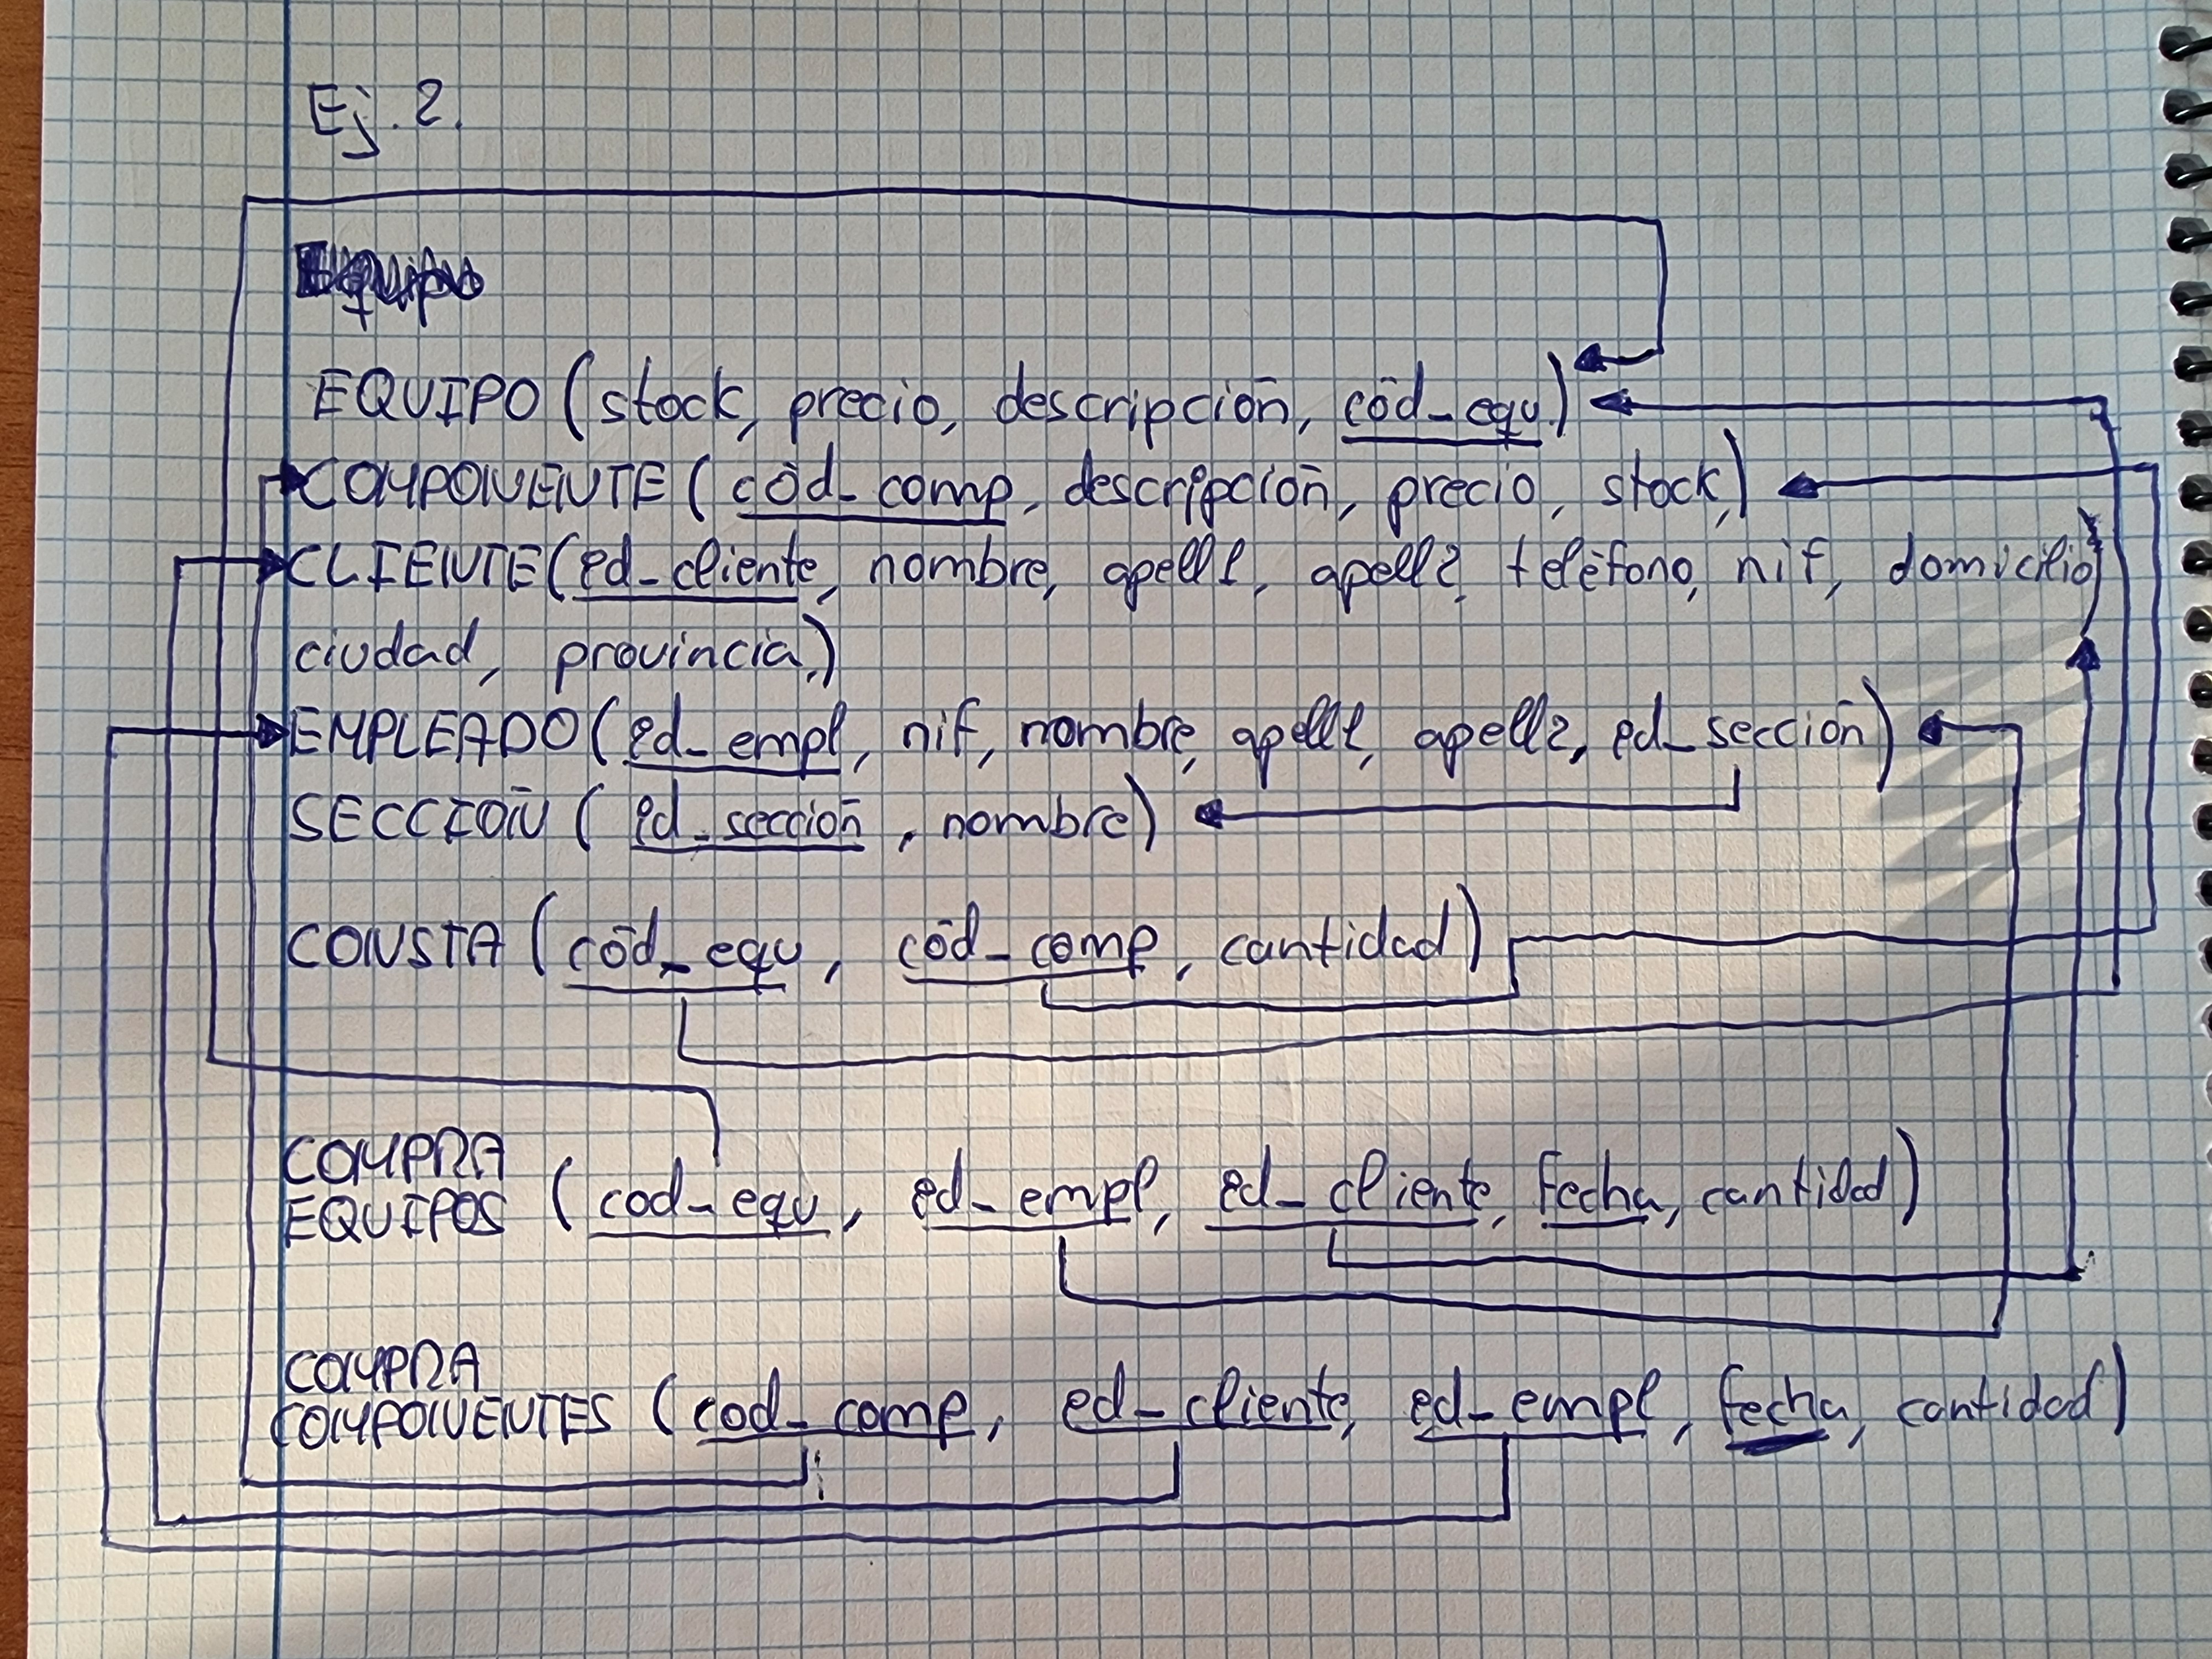 Ej. 2.
EQUIPO (stock, precio, descripción, cód_equ)
COMPONENTE (cód_comp, descripción, precio, stock,)
CLIENTE (id_cliente, nombre, apell1, apell2, teléfono, nif, domicilio
ciudad, provincia,)
EMPLEADO (id_empl, nif, nombre, apell1, apell2, id_sección)
SECCIÓN (id_sección, nombre)
CONSTA (cód_equ, cód_comp, cantidad)
COMPRA
EQUIPOS (cod_equ, id_empl, id_cliente, fecha, cantidad)
COMPRA
COMPONENTES (cod_comp, id_cliente, id_empl, fecha, cantidad)